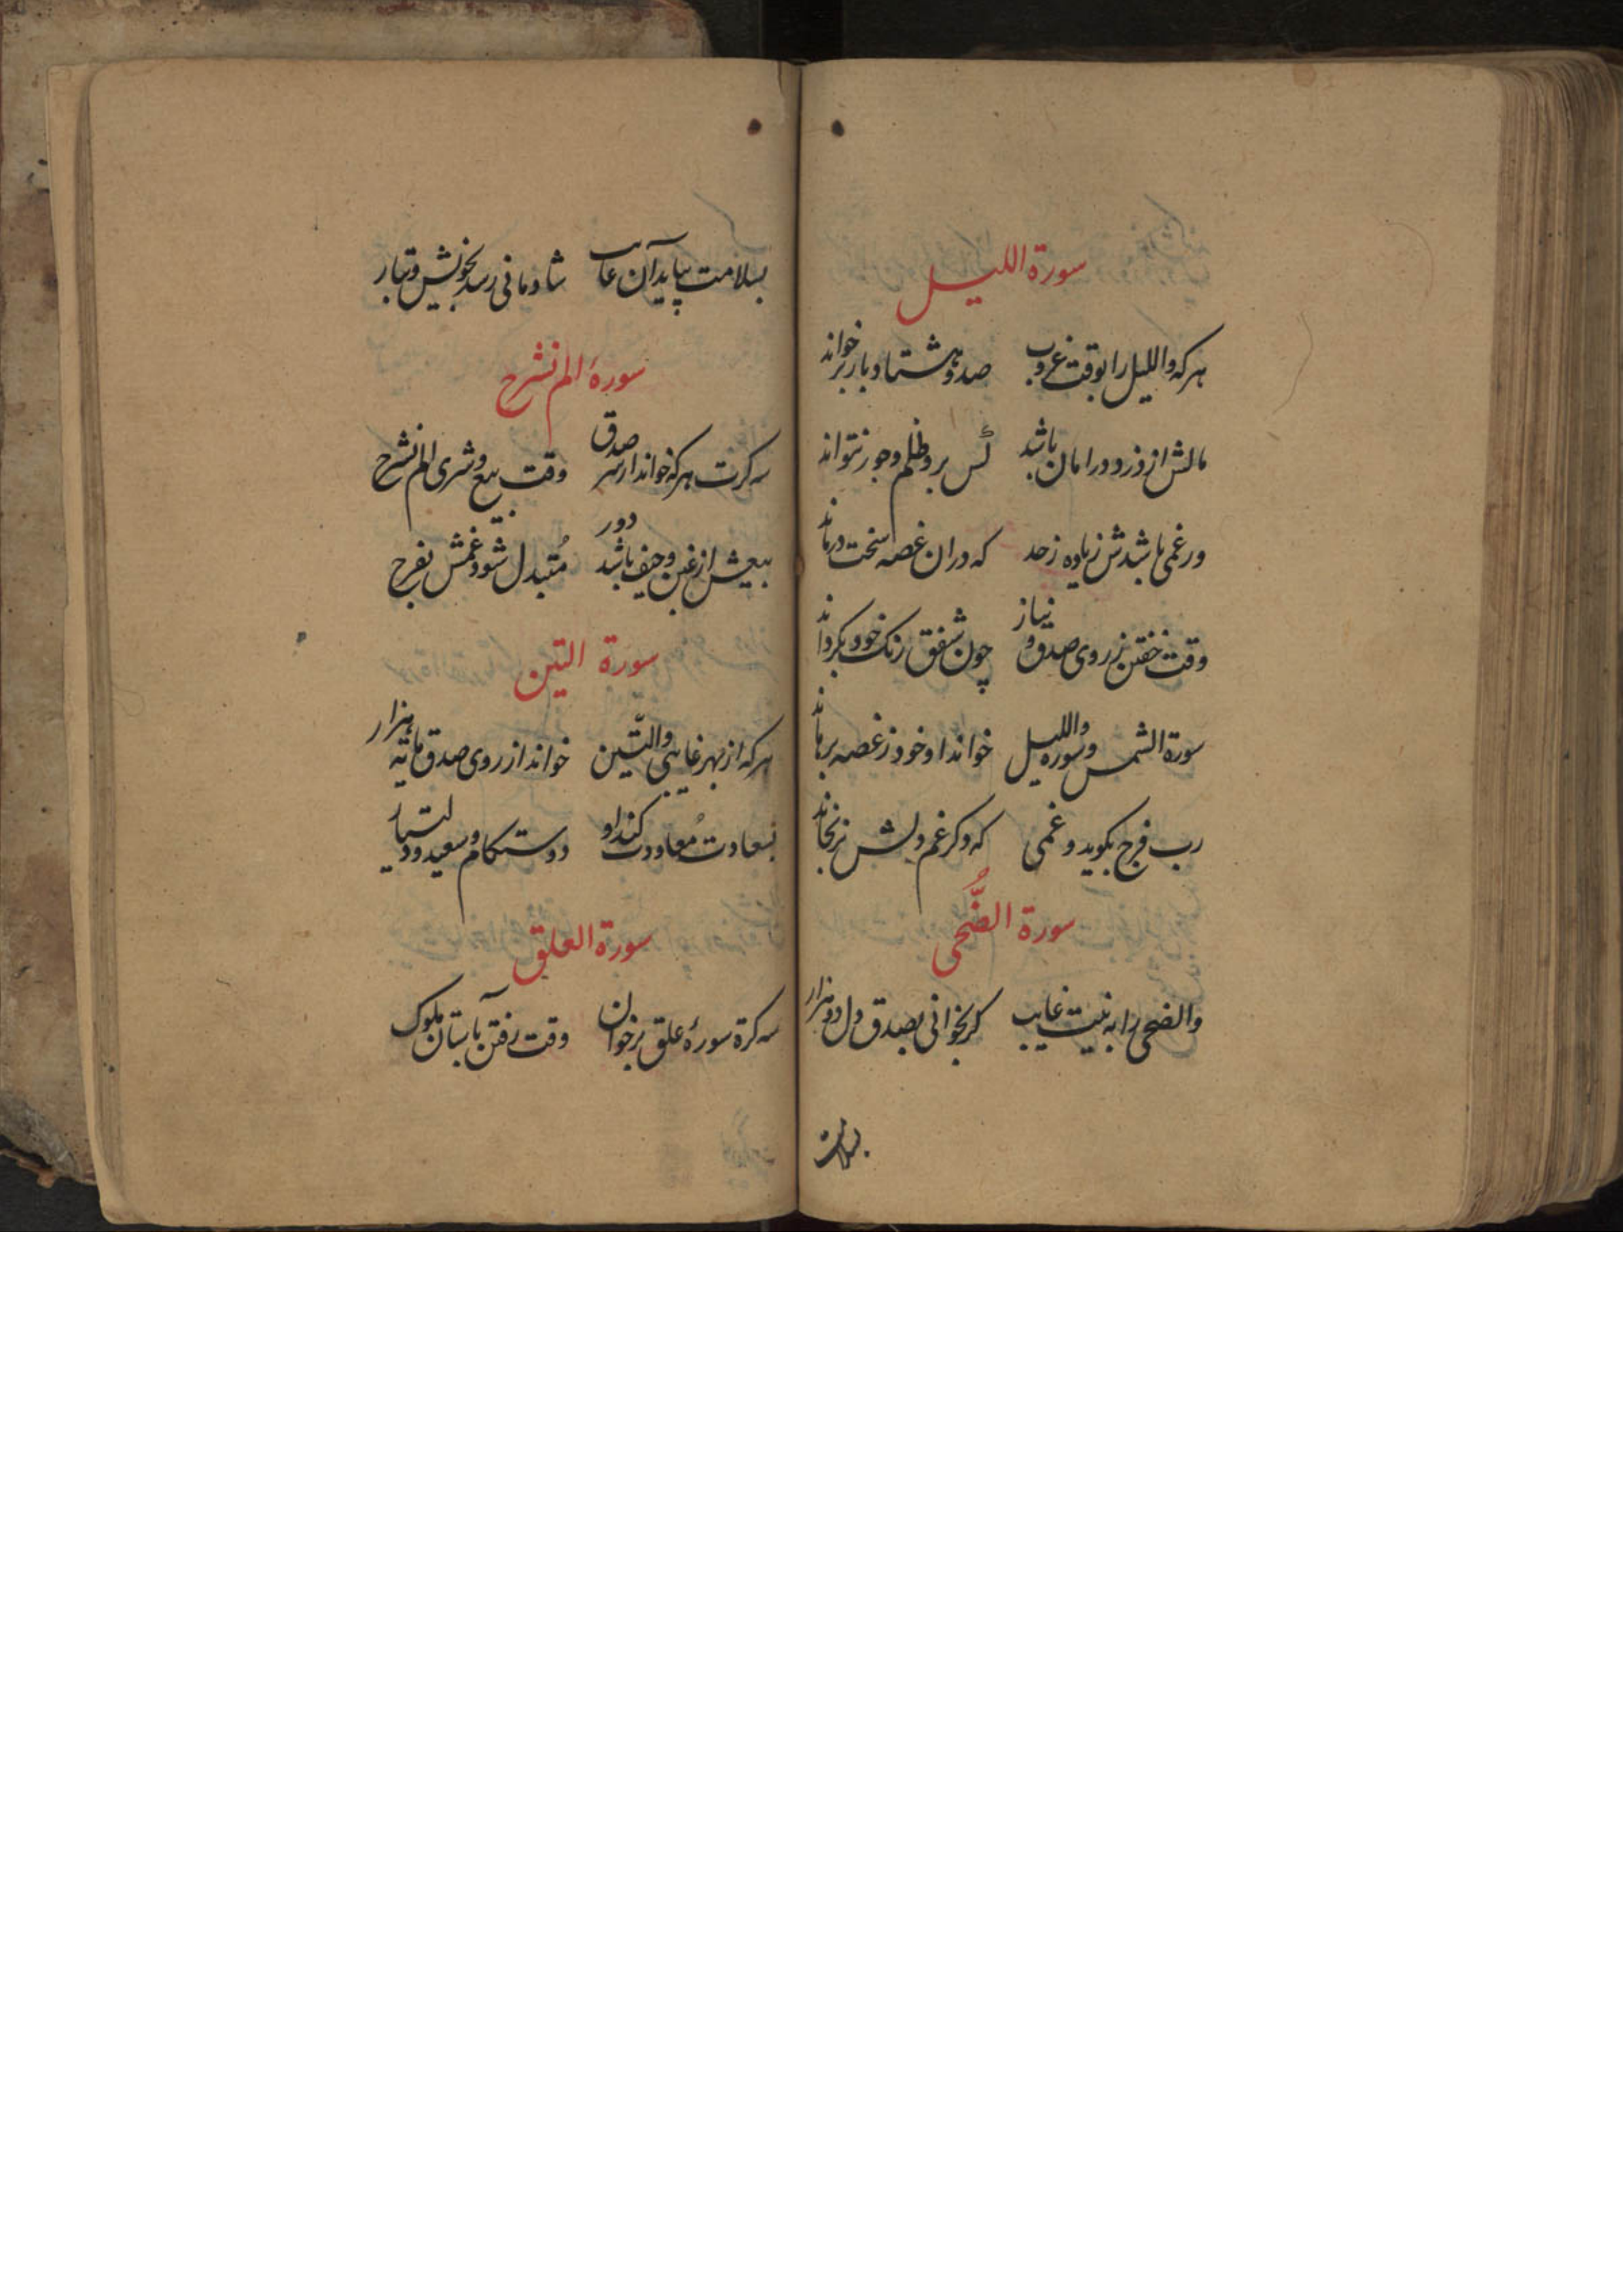 سورة الليل
هرکه والليل را بوقت غروب صد و هشتاد بار برخواند
مالش از دزد در امان باشد کس برو ظلم و جور نتواند
ور غمی باشدش زیاده ز حد که دران غصه سخت درماند
وقت خفتن ز روی صدق و نیاز چون شفق رنک خود بکرداند
سورة الشمس و سوره والليل خواند او خود ز غصه برهاند
رب فرج بکوید و غمی که دکر غم دلش نرنجاند
سورة الضُّحى
والضحی را به نیت غایب کر بخوانی بصدق دل دو هزار
بسلامت
بسلامت بیاید آن غایب شادمانی رسد بخویش و تبار
سورۀ الم نشرح
سه کرت هرکه خواند از سر صدق وقت بیع و شری الم نشرح
بیعش از غبن و حیف باشد دور مُتبدل شود غمش بفرح
سورة التين
هرکه از بهر غایبی والتّین خواند از روی صدق مایه هزار
بسعادت مُعاودت کند او دوستکام و سعید و
سورة العلق
سه کرة سورۀ علق برخوان وقت رفتن بآستان ملوک